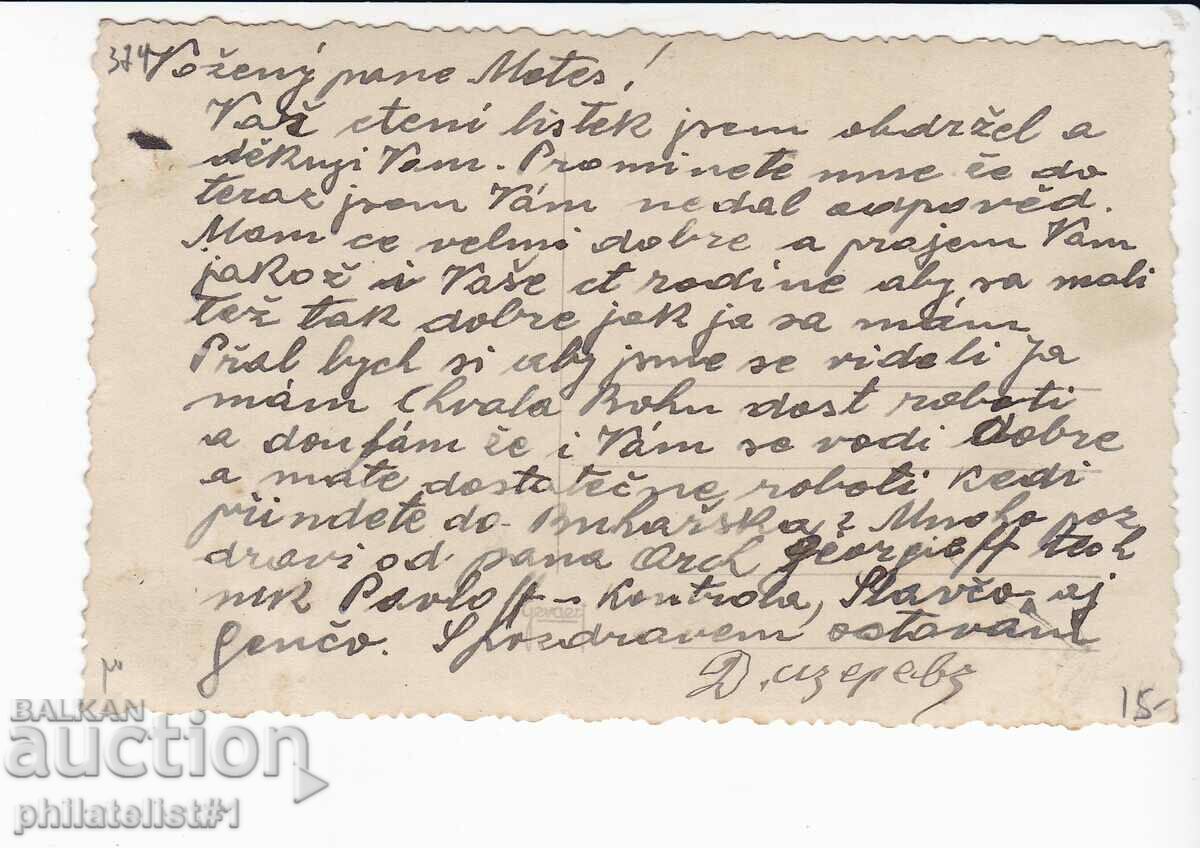 374
Vožený pane Motes!
Vaš cteni listek jsem obdržel a
děkuji Vam. Prominete mne že do
teraz jsem Vám nedal odpověd.
Mam ce velmi dobre a prajem Vam
jakož i Vaše ct rodine aby sa mali
tež tak dobre jak ja sa mám
Přal bych si aby jsme se videli Ja
mám Chvala Bohu dost roboti
a doufám že i Vám se vodi dobre
a mate dostatečne roboti Kedi
přindete do Buhařska? Mnoho poz
dravi od pana Arch Georgieff tech
nik Pavloff - Kontrola, Slavčo aj
Genčo. S pozdravem ostavam
Gevaert
15-
BALKAN
auction
philatelist#1